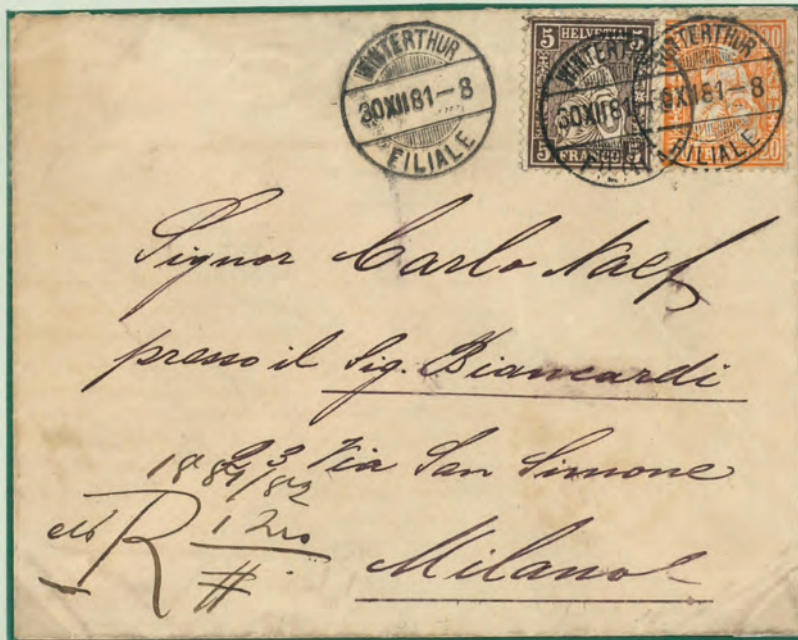 WINTERTHUR
30XII81-8
FILIALE
5 HELVETIA 5
5 FRANCO 5
WINTERTHUR
30XII81-8
FILIALE
WINTERTHUR
XII81-8
FILIALE
20
20
Signor Carlo Naef
presso il Sig. Biancardi
Via San Simone
Milano
R
#